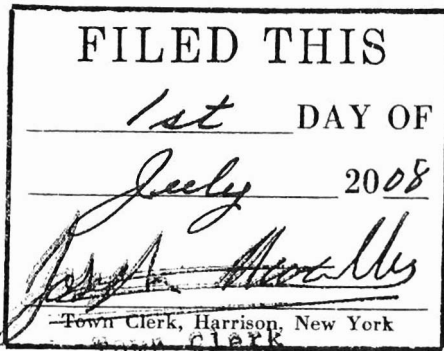 FILED THIS
1st DAY OF
July 2008
Joseph
Town Clerk, Harrison, New York
Town Clerk